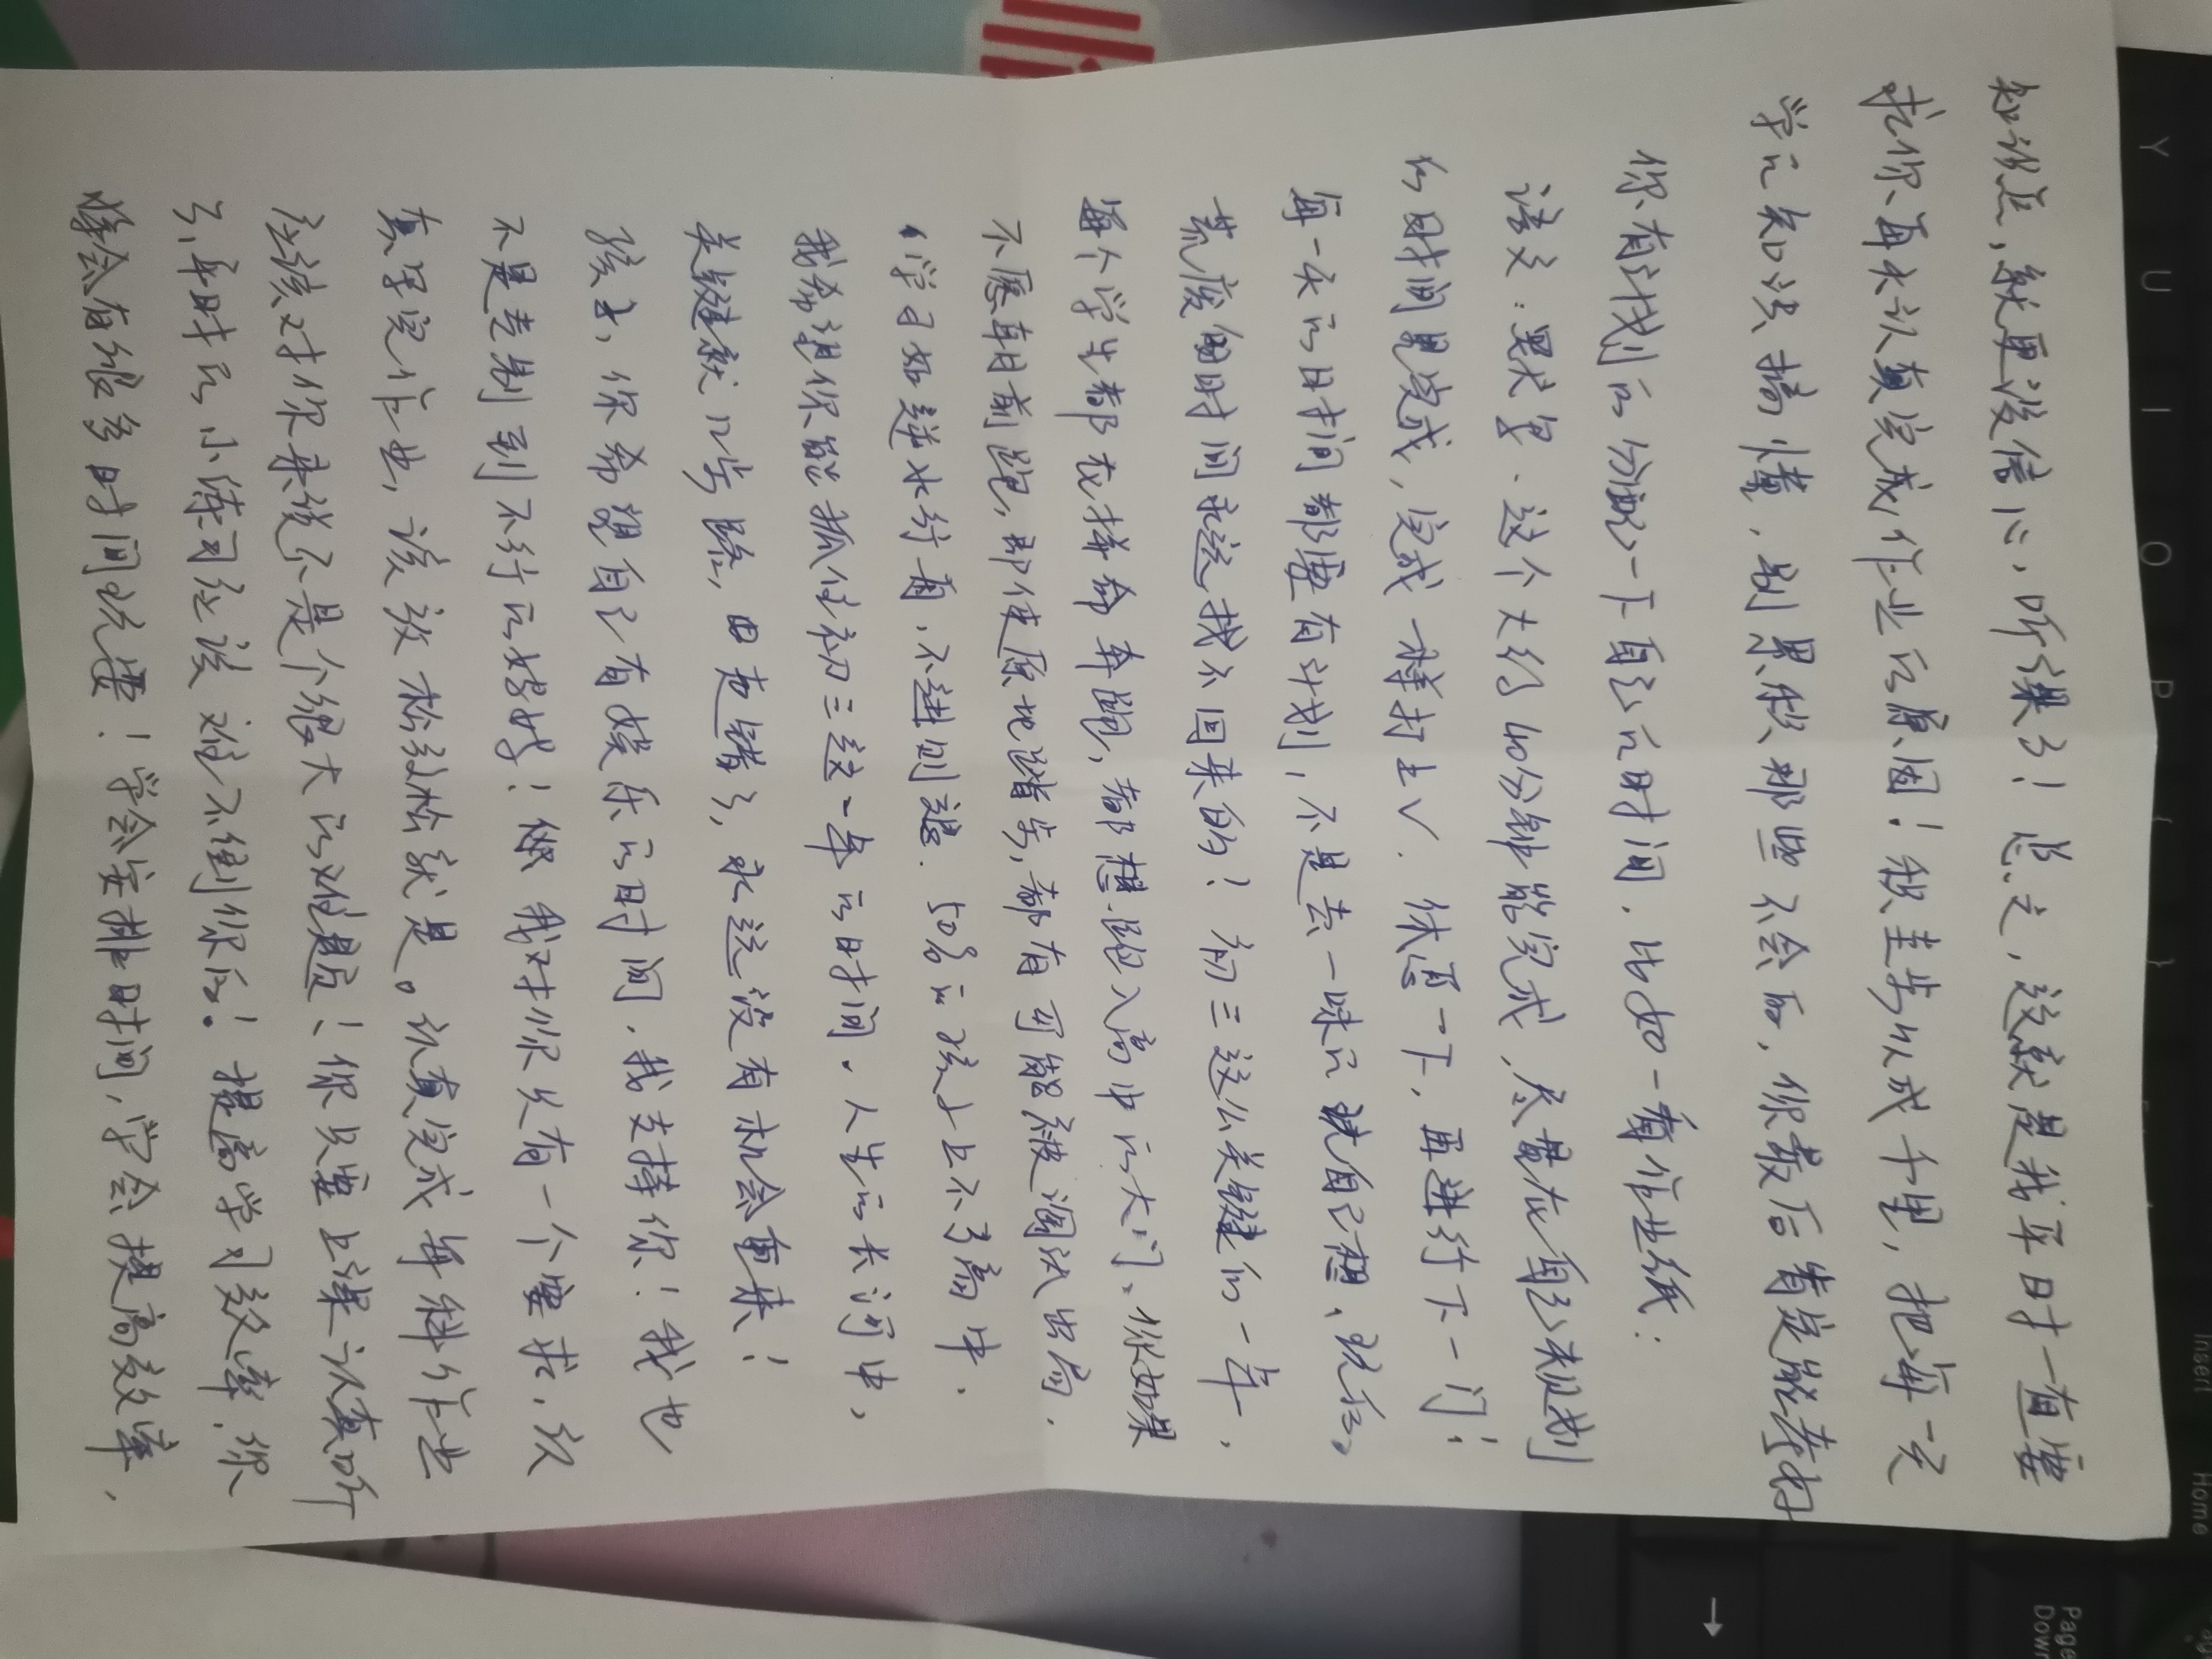 知识点，就更没信心，听课了！总之，这就是我平时一直要
求你再大认真完成作业的原因！积圭步以成千里，把每一天
学的知识搞懂，别累积那些不会的，你最后肯定能考好
你有计划的分配一下自己的时间，比如一看作业纸：
语文：默字．这个大约40分钟能完成，尽量在自己规划
的时间里完成，完成一样打上√．休息一下，再进行下一门；
每一天的时间都要有计划，不是去一味的
荒废的时间永远找不回来的！初三这么关键的一年，
每个学生都在拼命奔跑，都想跑入高中的大门。你如果
不愿朝前跑，即使原地踏步，都有可能被淘汰出局．
学习如逆水行舟，不进则退．50%的孩子上不了高中．
我希望你能抓住初三这一年的时间．人生的长河中，
关键就几步路，由走错了，永远没有机会重来！
孩子，你希望自己有娱乐的时间，我支持你！我也
不是专制到不行的妈妈！我对你只有一个要求，认
真写完作业，该放松放松就是。认真完成每科作业
应该对你来说不是个很大的难题！你只要上课认真听
了，平时的小练习应该难不倒你的！提高学习效率，你
将会有很多时间玩耍！学会安排时间，学会提高效率，
Y U I O P
Insert
Home
Page
Down
↓